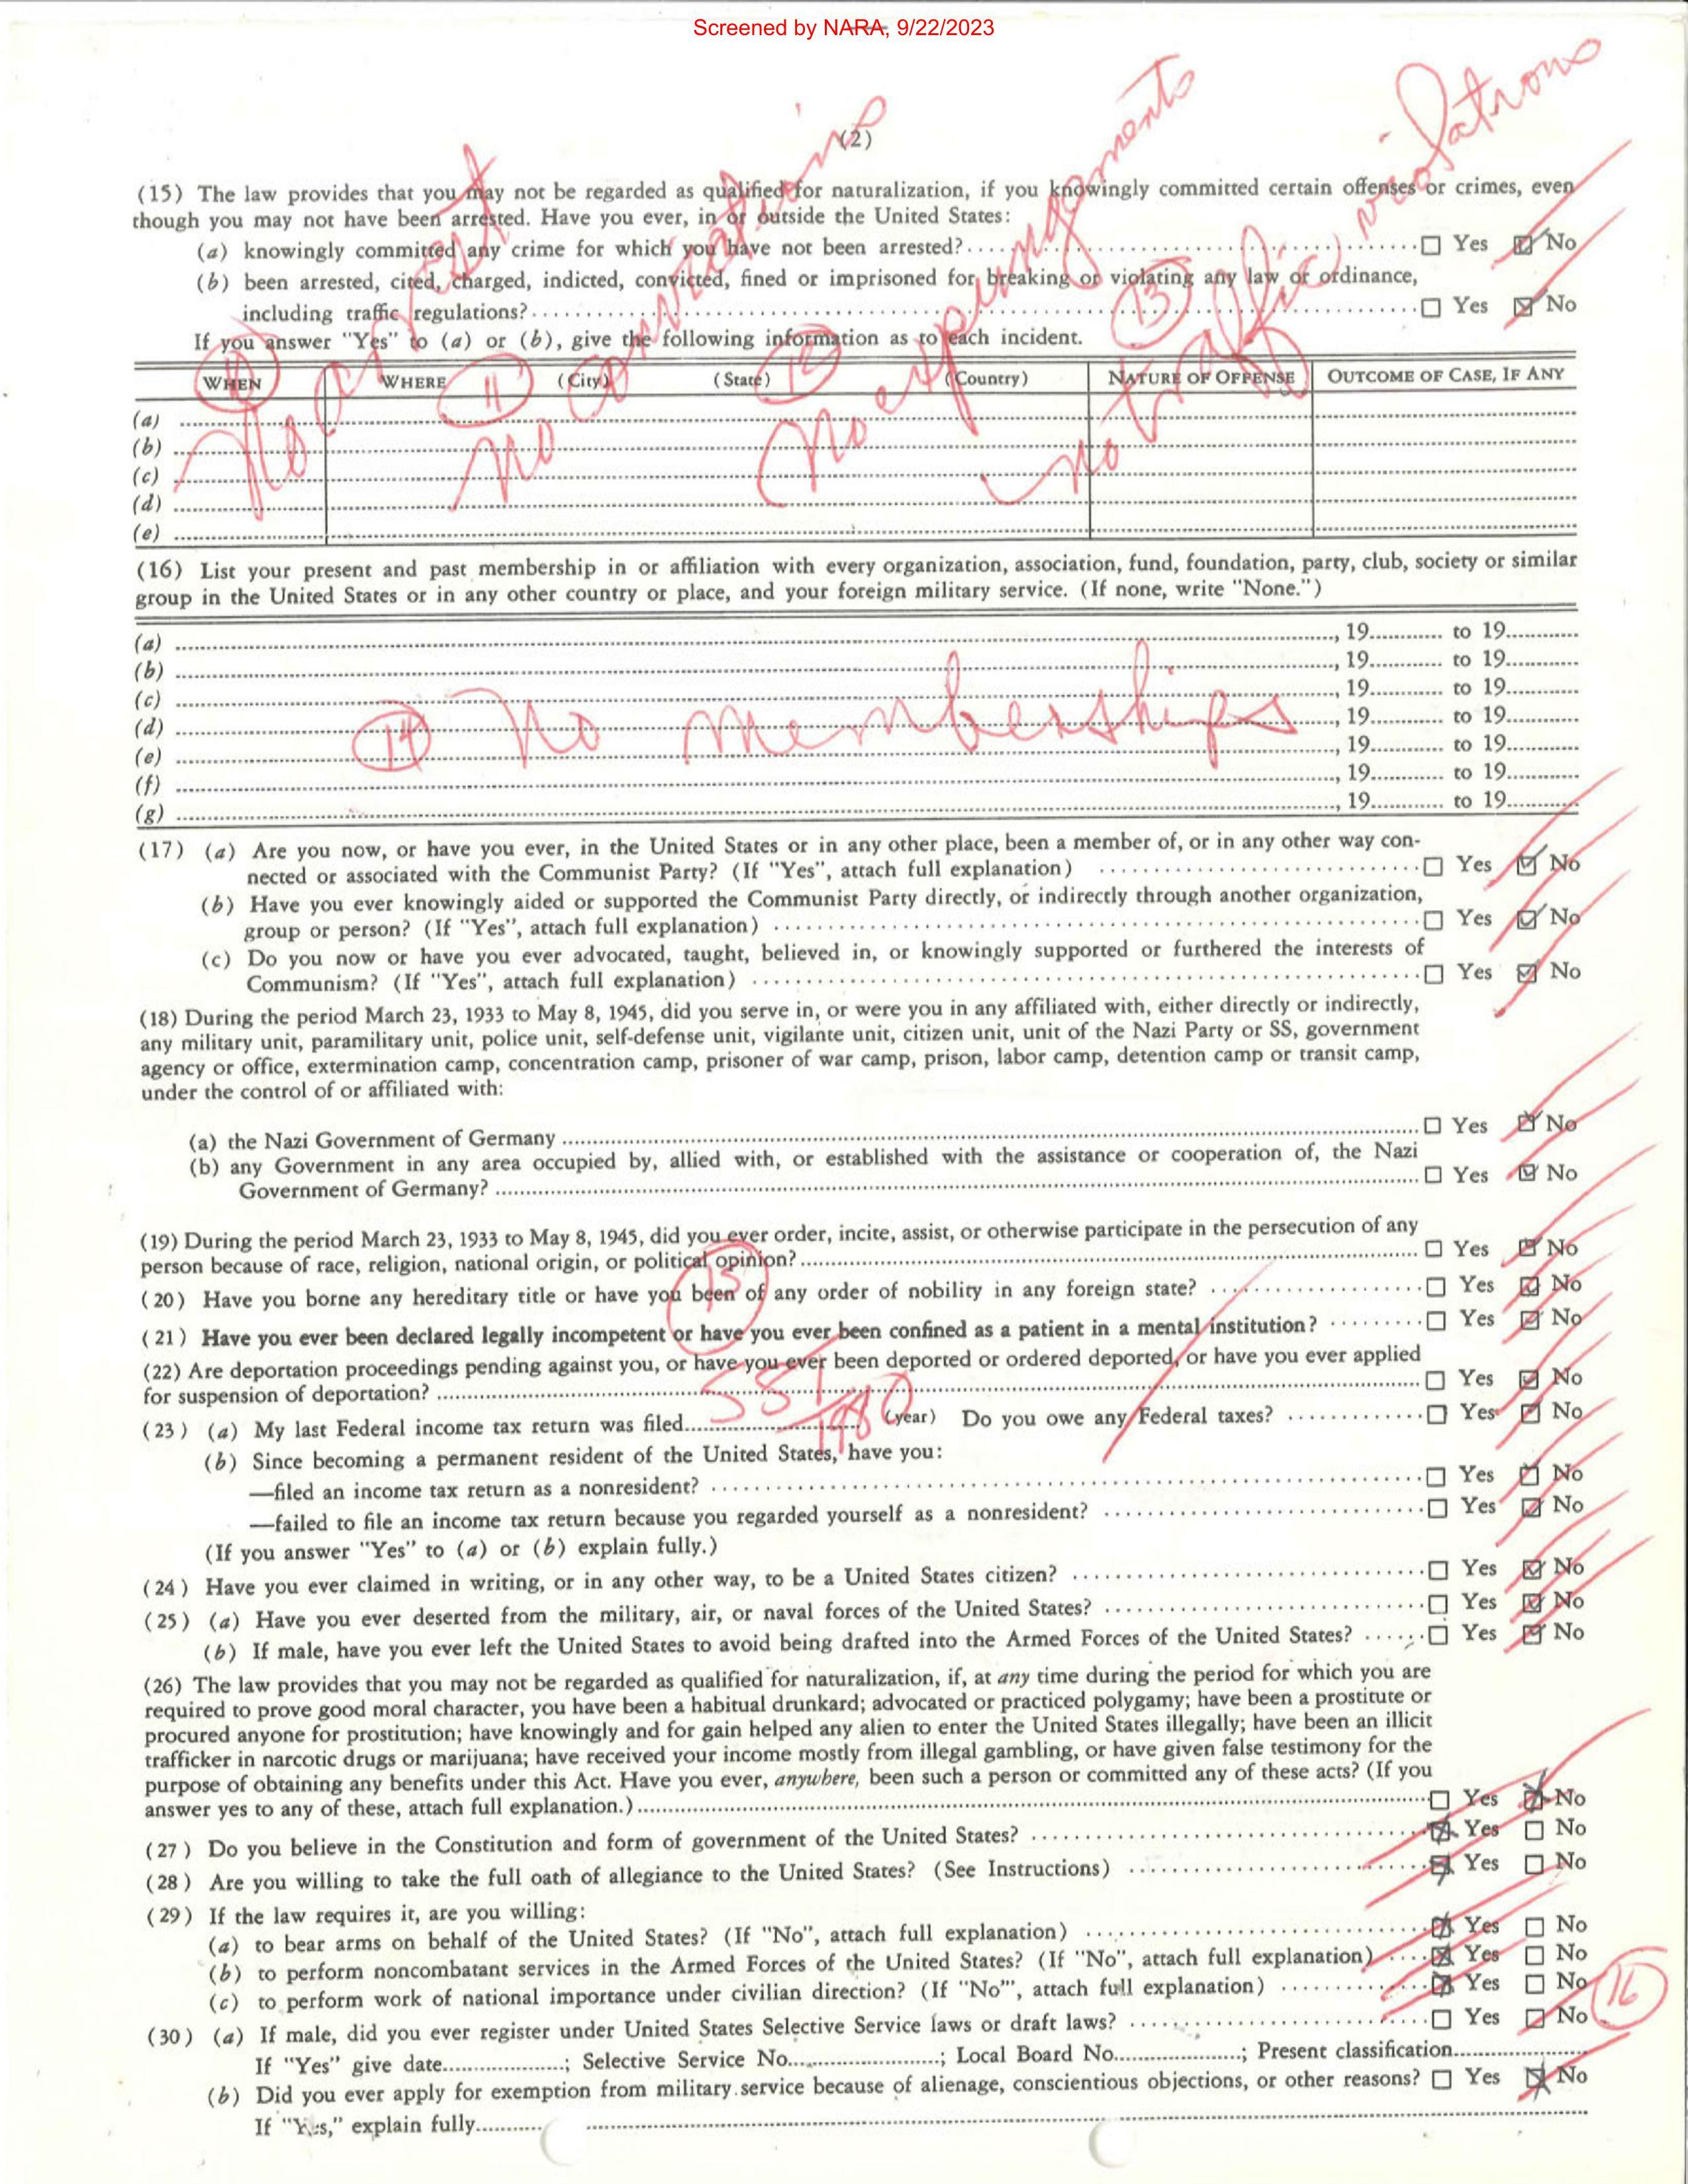 Screened by NARA, 9/22/2023
(2)
(15) The law provides that you may not be regarded as qualified for naturalization, if you knowingly committed certain offenses or crimes, even
though you may not have been arrested. Have you ever, in or outside the United States:
(a) knowingly committed any crime for which you have not been arrested? ☐ Yes ☑ No
(b) been arrested, cited, charged, indicted, convicted, fined or imprisoned for breaking or violating any law or ordinance,
including traffic regulations? ☐ Yes ☒ No
If you answer "Yes" to (a) or (b), give the following information as to each incident.
WHEN WHERE (City) (State) (Country) NATURE OF OFFENSE OUTCOME OF CASE, IF ANY
(a)
(b)
(c)
(d)
(e)
No arrest
11 No convictions
12 No expungments
13 No traffic violations
(16) List your present and past membership in or affiliation with every organization, association, fund, foundation, party, club, society or similar
group in the United States or in any other country or place, and your foreign military service. (If none, write "None.")
(a) , 19 to 19
(b) , 19 to 19
(c) , 19 to 19
(d) , 19 to 19
(e) , 19 to 19
(f) , 19 to 19
(g) , 19 to 19
14 No memberships
(17) (a) Are you now, or have you ever, in the United States or in any other place, been a member of, or in any other way con-
nected or associated with the Communist Party? (If "Yes", attach full explanation) ☐ Yes ☑ No
(b) Have you ever knowingly aided or supported the Communist Party directly, or indirectly through another organization,
group or person? (If "Yes", attach full explanation) ☐ Yes ☑ No
(c) Do you now or have you ever advocated, taught, believed in, or knowingly supported or furthered the interests of
Communism? (If "Yes", attach full explanation) ☐ Yes ☑ No
(18) During the period March 23, 1933 to May 8, 1945, did you serve in, or were you in any affiliated with, either directly or indirectly,
any military unit, paramilitary unit, police unit, self-defense unit, vigilante unit, citizen unit, unit of the Nazi Party or SS, government
agency or office, extermination camp, concentration camp, prisoner of war camp, prison, labor camp, detention camp or transit camp,
under the control of or affiliated with:
(a) the Nazi Government of Germany ☐ Yes ☑ No
(b) any Government in any area occupied by, allied with, or established with the assistance or cooperation of, the Nazi
Government of Germany? ☐ Yes ☑ No
(19) During the period March 23, 1933 to May 8, 1945, did you ever order, incite, assist, or otherwise participate in the persecution of any
person because of race, religion, national origin, or political opinion? ☐ Yes ☑ No
(20) Have you borne any hereditary title or have you been of any order of nobility in any foreign state? ☐ Yes ☑ No
15
(21) Have you ever been declared legally incompetent or have you ever been confined as a patient in a mental institution? ☐ Yes ☑ No
(22) Are deportation proceedings pending against you, or have you ever been deported or ordered deported, or have you ever applied
for suspension of deportation? ☐ Yes ☑ No
(23) (a) My last Federal income tax return was filed SSI/1980 (year) Do you owe any Federal taxes? ☐ Yes ☑ No
(b) Since becoming a permanent resident of the United States, have you:
—filed an income tax return as a nonresident? ☐ Yes ☑ No
—failed to file an income tax return because you regarded yourself as a nonresident? ☐ Yes ☑ No
(If you answer "Yes" to (a) or (b) explain fully.)
(24) Have you ever claimed in writing, or in any other way, to be a United States citizen? ☐ Yes ☑ No
(25) (a) Have you ever deserted from the military, air, or naval forces of the United States? ☐ Yes ☑ No
(b) If male, have you ever left the United States to avoid being drafted into the Armed Forces of the United States? ☐ Yes ☑ No
(26) The law provides that you may not be regarded as qualified for naturalization, if, at any time during the period for which you are
required to prove good moral character, you have been a habitual drunkard; advocated or practiced polygamy; have been a prostitute or
procured anyone for prostitution; have knowingly and for gain helped any alien to enter the United States illegally; have been an illicit
trafficker in narcotic drugs or marijuana; have received your income mostly from illegal gambling, or have given false testimony for the
purpose of obtaining any benefits under this Act. Have you ever, anywhere, been such a person or committed any of these acts? (If you
answer yes to any of these, attach full explanation.) ☐ Yes ☒ No
(27) Do you believe in the Constitution and form of government of the United States? ☒ Yes ☐ No
(28) Are you willing to take the full oath of allegiance to the United States? (See Instructions) ☒ Yes ☐ No
(29) If the law requires it, are you willing:
(a) to bear arms on behalf of the United States? (If "No", attach full explanation) ☒ Yes ☐ No
(b) to perform noncombatant services in the Armed Forces of the United States? (If "No", attach full explanation) ☒ Yes ☐ No
(c) to perform work of national importance under civilian direction? (If "No"', attach full explanation) ☒ Yes ☐ No
16
(30) (a) If male, did you ever register under United States Selective Service laws or draft laws? ☐ Yes ☑ No
If "Yes" give date ; Selective Service No. ; Local Board No. ; Present classification
(b) Did you ever apply for exemption from military service because of alienage, conscientious objections, or other reasons? ☐ Yes ☒ No
If "Yes," explain fully